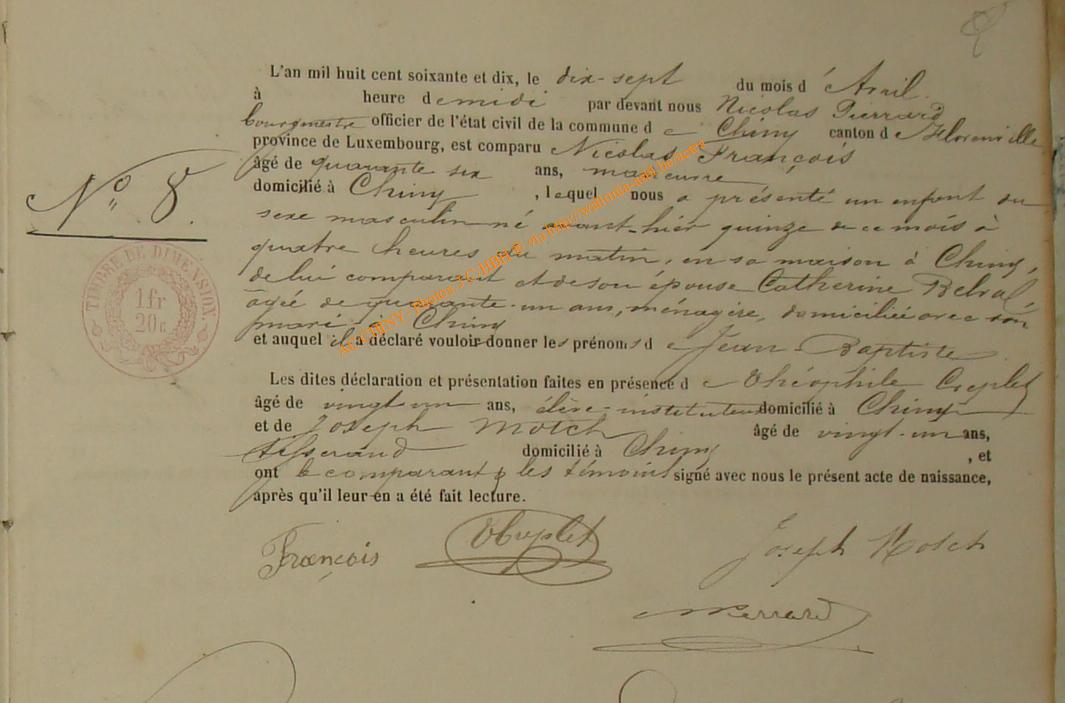 L'an mil huit cent soixante et dix, le dix-sept du mois d'Avril
à heure de midi par devant nous Nicolas Pierrard
bourgmestre officier de l'état civil de la commune de Chiny canton de Florenville
province de Luxembourg, est comparu Nicolas François
âgé de quarante six ans, manœuvre
domicilié à Chiny, lequel nous a présenté un enfant du
sexe masculin né avant-hier quinze de ce mois à
quatre heures du matin, en sa maison à Chiny,
de lui comparant et de son épouse Catherine Belval
âgée de quarante-un ans, ménagère, domiciliée avec son
mari à Chiny
et auquel il a déclaré vouloir donner les prénoms de Jean-Baptiste
Les dites déclaration et présentation faites en présence de Théophile Creplet
âgé de vingt-un ans, élève-instituteur domicilié à Chiny
et de Joseph Motch âgé de vingt-un ans,
tisserand domicilié à Chiny, et
ont le comparant & les témoins signé avec nous le présent acte de naissance,
après qu'il leur en a été fait lecture.
N° 8.
TIMBRE DE DIMENSION
1 fr
20 c.
François
Creplet
Joseph Motch
Pierrard